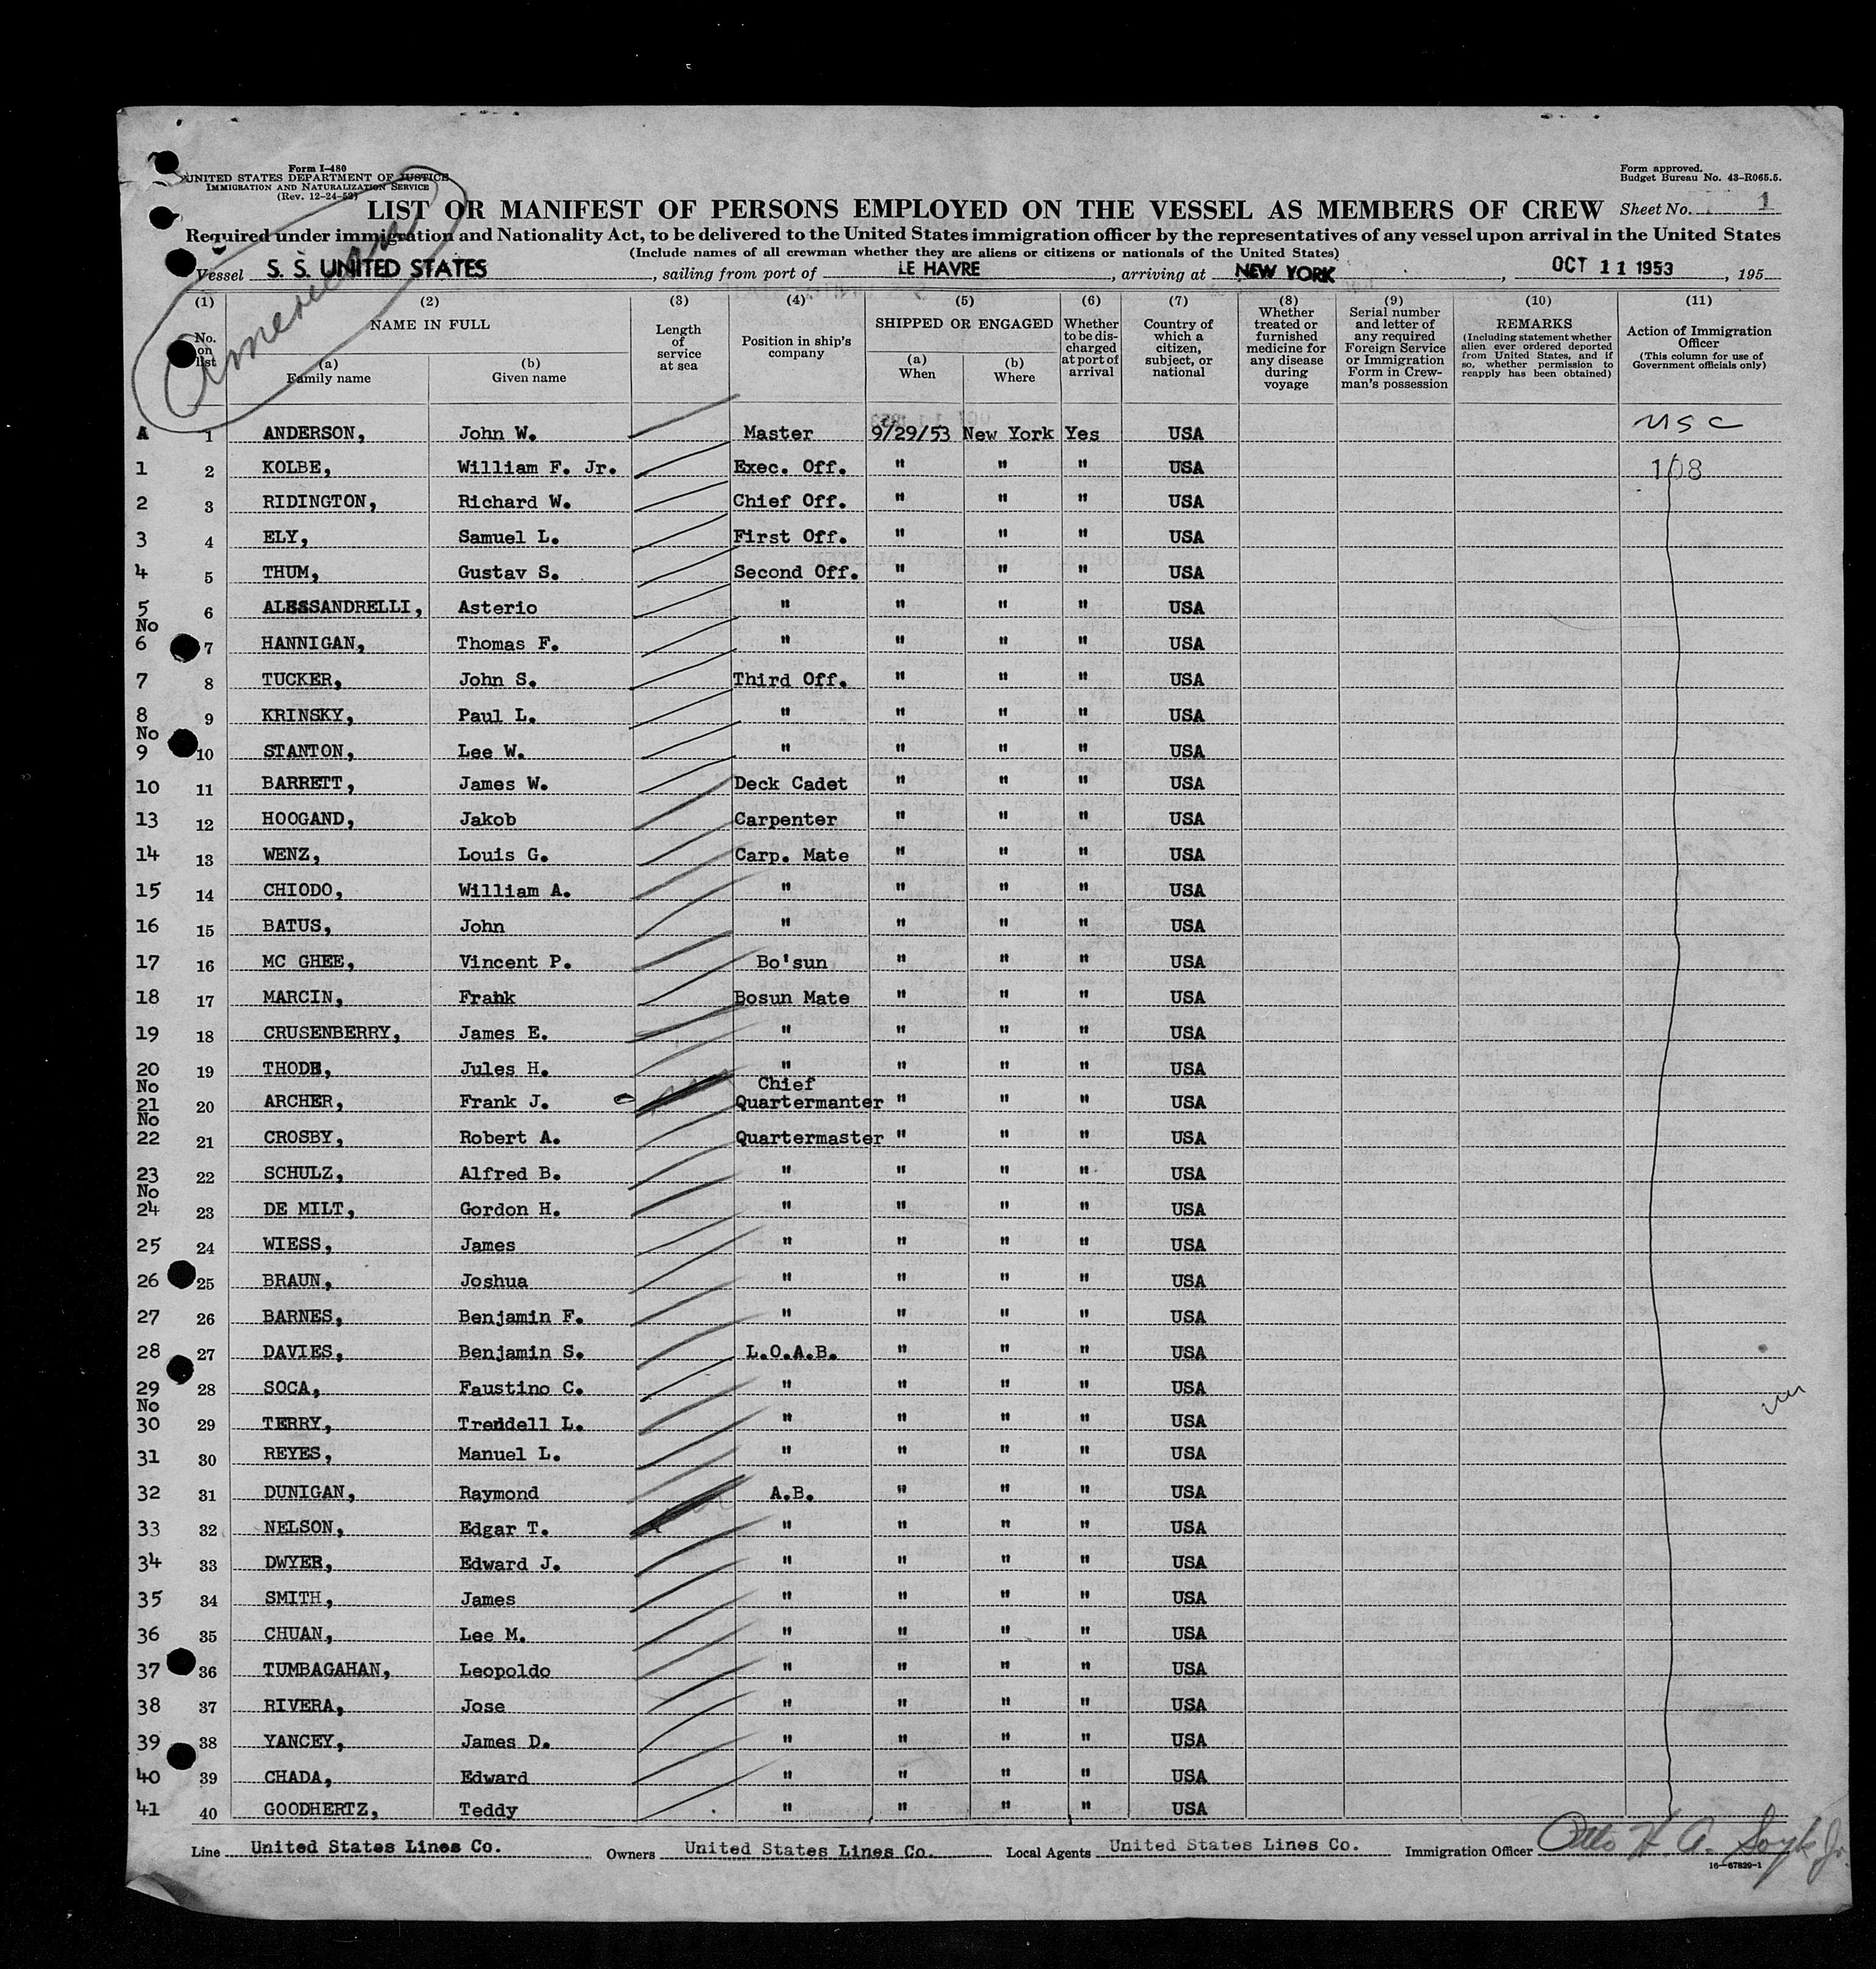 Form I-480
UNITED STATES DEPARTMENT OF JUSTICE
IMMIGRATION AND NATURALIZATION SERVICE
(Rev. 12-24-52)
Form approved.
Budget Bureau No. 43-R065.5.
LIST OR MANIFEST OF PERSONS EMPLOYED ON THE VESSEL AS MEMBERS OF CREW Sheet No. 1
Required under immigration and Nationality Act, to be delivered to the United States immigration officer by the representatives of any vessel upon arrival in the United States
(Include names of all crewman whether they are aliens or citizens or nationals of the United States)
Vessel S. S. UNITED STATES, sailing from port of LE HAVRE, arriving at NEW YORK, OCT 11 1953, 195
American
(1) (2) (3) (4) (5) (6) (7) (8) (9) (10) (11)
No. on list
NAME IN FULL
(a) Family name
(b) Given name
Length of service at sea
Position in ship's company
SHIPPED OR ENGAGED
(a) When
(b) Where
Whether to be discharged at port of arrival
Country of which a citizen, subject, or national
Whether treated or furnished medicine for any disease during voyage
Serial number and letter of any required Foreign Service or Immigration Form in Crewman's possession
REMARKS
(Including statement whether alien ever ordered deported from United States, and if so, whether permission to reapply has been obtained)
Action of Immigration Officer
(This column for use of Government officials only)
A 1 ANDERSON, John W. Master 9/29/53 New York Yes USA USC
1 2 KOLBE, William F. Jr. Exec. Off. " " " USA 108
2 3 RIDINGTON, Richard W. Chief Off. " " " USA
3 4 ELY, Samuel L. First Off. " " " USA
4 5 THUM, Gustav S. Second Off. " " " USA
5 6 ALESSANDRELLI, Asterio " " " " USA
No
6 7 HANNIGAN, Thomas F. " " " " USA
7 8 TUCKER, John S. Third Off. " " " USA
8 9 KRINSKY, Paul L. " " " " USA
No
9 10 STANTON, Lee W. " " " " USA
10 11 BARRETT, James W. Deck Cadet " " " USA
13 12 HOOGAND, Jakob Carpenter " " " USA
14 13 WENZ, Louis G. Carp. Mate " " " USA
15 14 CHIODO, William A. " " " " USA
16 15 BATUS, John " " " " USA
17 16 MC GHEE, Vincent P. Bo'sun " " " USA
18 17 MARCIN, Frank Bosun Mate " " " USA
19 18 CRUSENBERRY, James E. " " " " USA
20 19 THODE, Jules H. " " " " USA
No Chief
21 20 ARCHER, Frank J. Quartermanter " " " USA
No
22 21 CROSBY, Robert A. Quartermaster " " " USA
23 22 SCHULZ, Alfred B. " " " " USA
No
24 23 DE MILT, Gordon H. " " " " USA
25 24 WIESS, James " " " " USA
26 25 BRAUN, Joshua " " " " USA
27 26 BARNES, Benjamin F. " " " " USA
28 27 DAVIES, Benjamin S. L.O.A.B. " " " USA
29 28 SOCA, Faustino C. " " " " USA
No
30 29 TERRY, Trendell L. " " " " USA
31 30 REYES, Manuel L. " " " " USA
32 31 DUNIGAN, Raymond A.B. " " " USA
33 32 NELSON, Edgar T. " " " " USA
34 33 DWYER, Edward J. " " " " USA
35 34 SMITH, James " " " " USA
36 35 CHUAN, Lee M. " " " " USA
37 36 TUMBAGAHAN, Leopoldo " " " " USA
38 37 RIVERA, Jose " " " " USA
39 38 YANCEY, James D. " " " " USA
40 39 CHADA, Edward " " " " USA
41 40 GOODHERTZ, Teddy " " " " USA
Line United States Lines Co. Owners United States Lines Co. Local Agents United States Lines Co. Immigration Officer Otto H. A. Soyk Jr.
16—67829-1